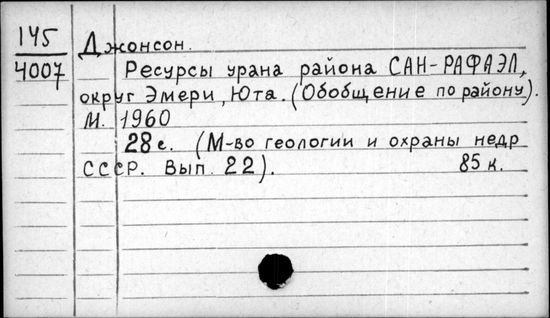 145
4007
Джонсон.
Ресурсы урана района САН-РАФАЭЛ,
округ Эмери, Юта. (Обобщение по району).
М. 1960
28 с. (М-во геологии и охраны недр
СССР. Вып. 22). 85 к.